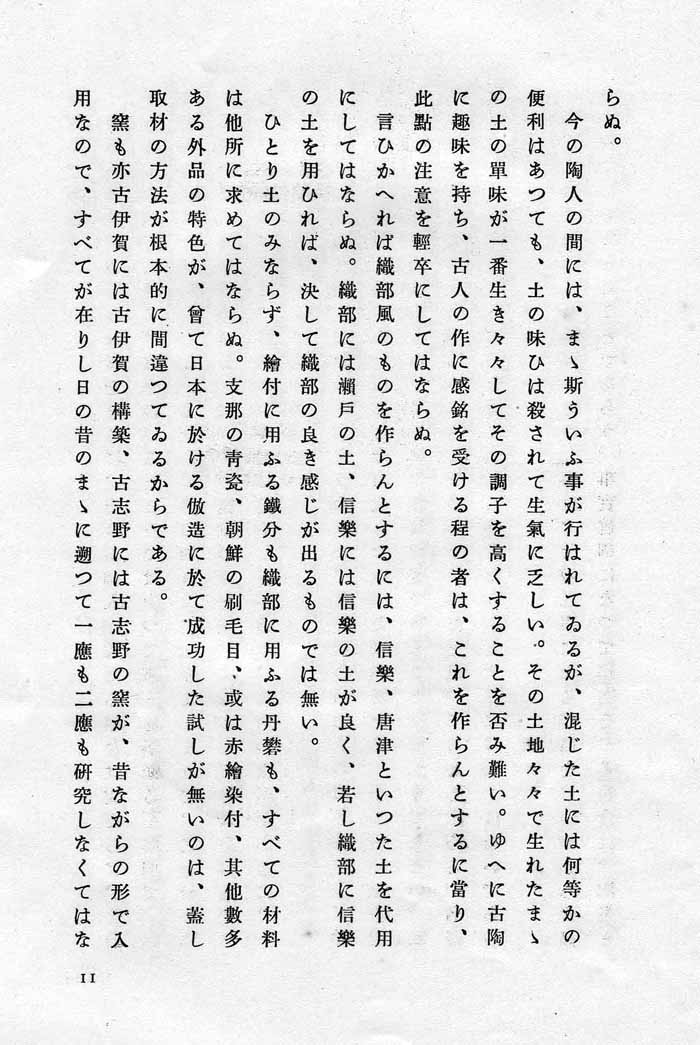 らぬ。
今の陶人の間には、まゝ斯ういふ事が行はれてゐるが、混じた土には何等かの
便利はあつても、土の味ひは殺されて生氣に乏しい。その土地々々で生れたまゝ
の土の單味が一番生き々々してその調子を高くすることを否み難い。ゆへに古陶
に趣味を持ち、古人の作に感銘を受ける程の者は、これを作らんとするに當り、
此點の注意を輕卒にしてはならぬ。
言ひかへれば織部風のものを作らんとするには、信樂、唐津といつた土を代用
にしてはならぬ。織部には瀨戶の土、信樂には信樂の土が良く、若し織部に信樂
の土を用ひれば、決して織部の良き感じが出るものでは無い。
ひとり土のみならず、繪付に用ふる鐵分も織部に用ふる丹礬も、すべての材料
は他所に求めてはならぬ。支那の靑瓷、朝鮮の刷毛目、或は赤繪染付、其他數多
ある外品の特色が、曾て日本に於ける倣造に於て成功した試しが無いのは、蓋し
取材の方法が根本的に間違つてゐるからである。
窯も亦古伊賀には古伊賀の構築、古志野には古志野の窯が、昔ながらの形で入
用なので、すべてが在りし日の昔のまゝに遡つて一應も二應も硏究しなくてはな
11